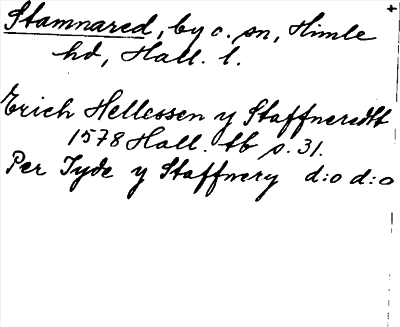 Stamnared, by o. sn, Himle
hd, Hall. l.
Erich Hellessen y Staffneredtt
1578 Hall. tb s. 31.
Per Tyde y Staffnery d:o d:o